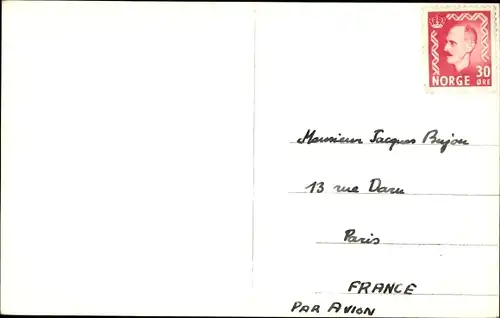 30
NORGE ØRE
Monsieur Jacques Bujon
13 rue Daru
Paris
FRANCE
PAR AVION